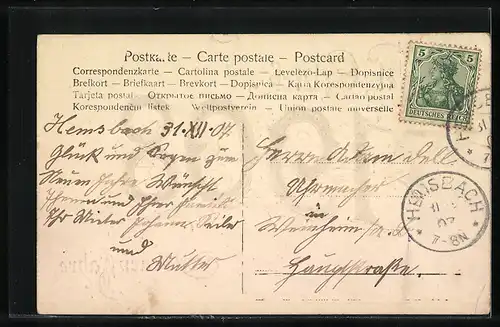 Postkarte – Carte postale – Postcard
Correspondenzkarte – Cartolina postale – Levelező-Lap – Dopisnice
Brefkort – Briefkaart – Brevkort – Dopisnica – Карта Korespondencyjna
Tarjeta postal – Открытое письмо – Дописна карта – Cartao postal
Korespondenční listek – Weltpostverein – Union postale universelle
5 5
DEUTSCHES REICH
HEMSBACH
7-8N
Hemsbach 31.XII.07.
Glück und Segen zum
Neuen Jahre Wünscht
Ihnen und Ihrer Familie
Ihr Mieter Johann
und
Mutter
Herrn Adam Dell
Uhrmacher
in
Weinheim
Hauptstraße.